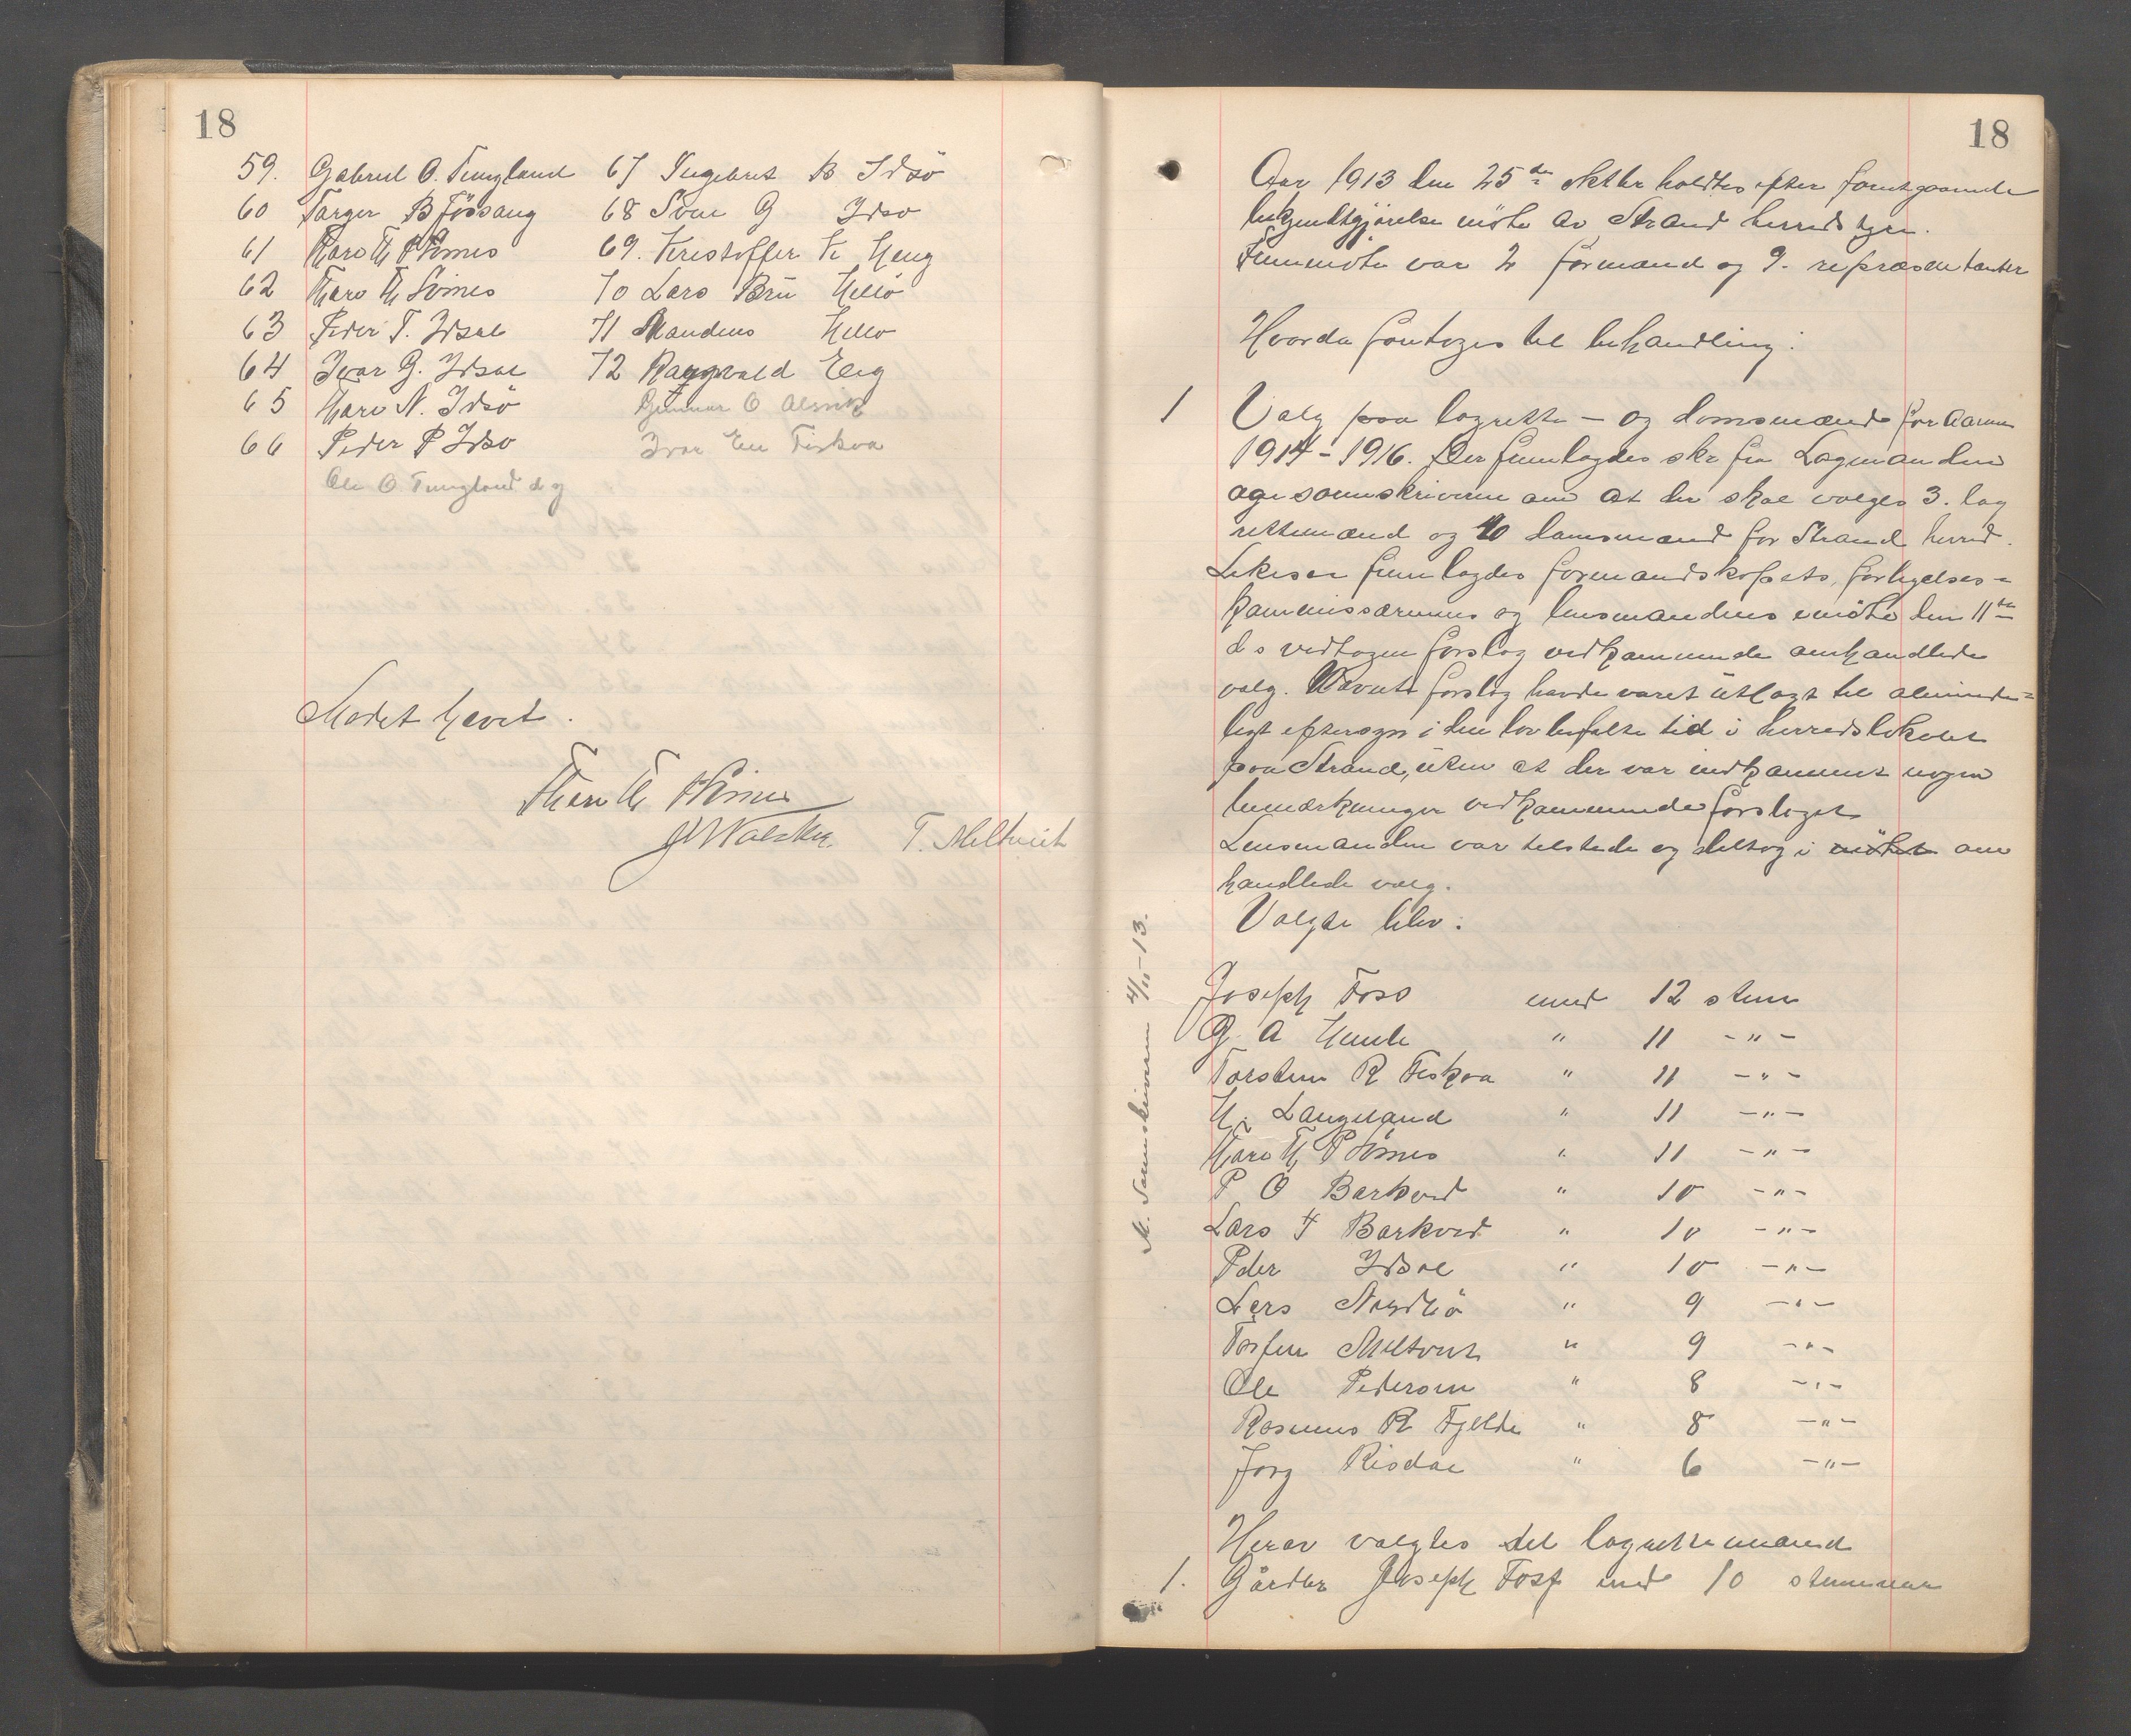 18
59. Gabriel O. Tungland
60 Targer B Jössang
61 Tharo Th P Sömes
62 Tharo Th Sömes
63 Peder T. Idsal
64 Ivar G. Idsal
65 Hans N. Idsö
66 Peder P Idsö
Ole O. Tungland d y
67 Ingebret B Idsö
68 Sven G Idsö
69. Kristoffer K Heng
70 Lars Brü Helle
71 Mandius Helle
72 Ragnvald Eeg
Gunnar O Alsvik
Ivar En Fiskaa
Mødet hævet.
Thar Th P Sömes
T. Meltveit
18
Aar 1913 den 25de oktbr holdtes efter forutgaaende
bekjendtgjörelse möte av Strand herredstyre.
Fremmötte var 2 formænd og 9. repræsentanter
Hvorda foretoges til behandling:
1 Valg paa lagrette - og domsmænd for aarene
1914 - 1916. Der fremlagdes skr fra Lagmanden
og sorenskriveren om at der skal vælges 3. lag
rettemænd og 10 domsmænd for Strand herred.
Likesaa fremlagdes formandskapets, forligelses-
kommissærernes og lensmandens i möte den 11te
ds vedtagen forslag vedkommende omhandlede
valg. Nævnte forslag havde været utlagt til alminde-
ligt eftersyn i den lovbefalte tid i herredslokalet
paa Strand, uten at der var indkommet nogen
bemærkninger vedkommende forslaget.
Lensmanden var tilstede og deltog i mötet om
handlede valg.
Valgte blev:
M. Sorenskriveren 4/11-13.
Joseph Foss med 12 stem
G. A Hemle " 11 -"-
Torsten R Fiskaa " 11 -"-
H. Langeland " 11 -"-
Tharo Th P Sömes " 11 -"-
P O Barkved " 10 -"-
Lars T Barkved " 10 -"-
Peder Idsal " 10 -"-
Lars Nordbö " 9 -"-
Torfin Meltveit " 9 -"-
Ole Pedersen " 8 -"-
Rasmus R Fjelde " 8 -"-
Jorg Risdal " 6 -"-
Herav valgtes til lagrettemænd
1. Gårdbr Joseph Foss med 10 stemmer